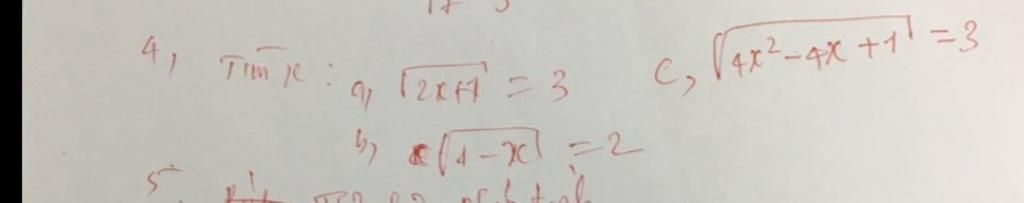 4, Tìm x: a, √2x+1 = 3 c, √4x² - 4x + 1 = 3
b, √1 - x = 2
5